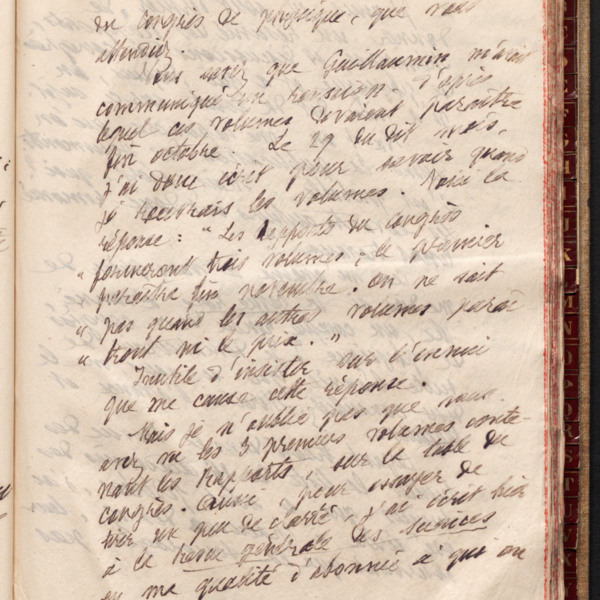 du congrès de physique, que vous
attendiez.
Vous savez que Guillaumin m'avait
communiqué un d'après
lequel ces volumes devaient paraître
fin octobre. Le 29 du dit mois,
j'ai donc écrit pour savoir quand
je les volumes. Voici la
réponse : " Les rapports du congrès
" formeront trois volumes ; le premier
paraîtra fin novembre. On ne sait
" pas quand les autres volumes paraî
" tront ni le prix. "
Inutile d'insister sur l'ennui
que me cause cette réponse.
Mais je n'oublie pas que vous
avez vu les 3 premiers volumes conte-
nant les Rapports, sur la table du
congrès. Aussi, pour essayer de
tirer un peu de clarté, j'ai écrit hier
à la Revue générale des Sciences
en ma qualité d'abonné à qui on
E
F
G
H
I
J
K
L
M
N
O
P
Q
R
S
T
U
V